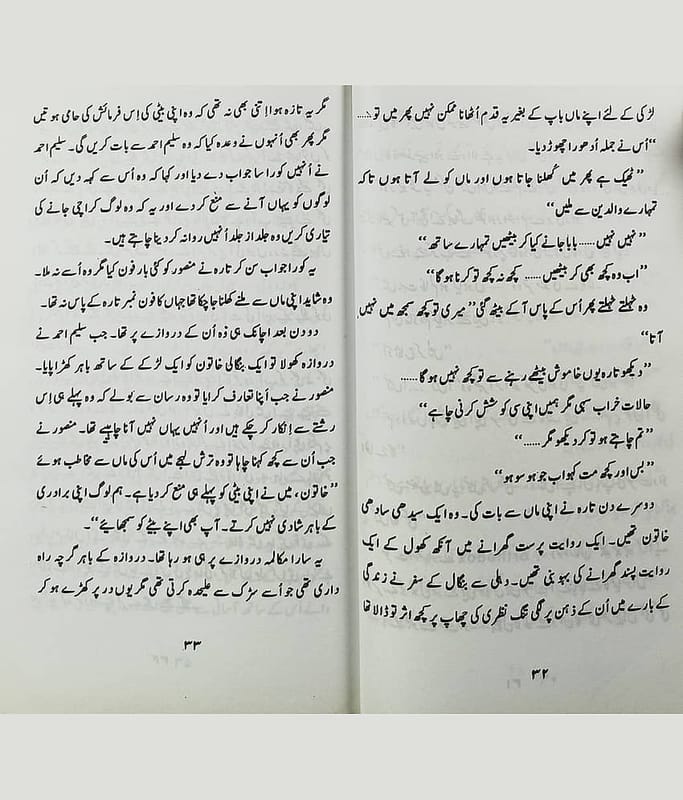 لڑکی کے لئے اپنے ماں باپ کے بغیر یہ قدم اُٹھانا ممکن نہیں پھر میں تو......
‘‘اُس نے جملہ اُدھورا چھوڑ دیا۔
’’ٹھیک ہے پھر میں گھلنا جاتا ہوں اور ماں کو لے آتا ہوں تاکہ
تمہارے والدین سے ملیں‘‘
’’نہیں نہیں...... بابا جانے کیا کر بیٹھیں تمہارے ساتھ‘‘
’’اب وہ کچھ بھی کر بیٹھیں...... کچھ نہ کچھ تو کرنا ہوگا‘‘
وہ ٹہلتے ٹہلتے پھر اُس کے پاس آ کے بیٹھ گئی’’میری تو کچھ سمجھ میں نہیں
آتا‘‘
’’دیکھو تارہ یوں خاموش بیٹھے رہنے سے تو کچھ نہیں ہوگا......
حالات خراب سہی مگر ہمیں اپنی سی کوشش کرنی چاہیے‘‘
’’تم چاہتے ہو تو کر دیکھو مگر......‘‘
’’بس اور کچھ مت کہو اب جو ہو سو ہو‘‘
دوسرے دن تارہ نے اپنی ماں سے بات کی۔ وہ ایک سیدھی سادھی
خاتون تھیں۔ ایک روایت پرست گھرانے میں آنکھ کھول کے ایک
روایت پسند گھرانے کی بہو بنی تھیں۔ دہلی سے بنگال کے سفر نے زندگی
کے بارے میں اُن کے ذہن پر لگی تنگ نظری کی چھاپ پر کچھ اثر تو ڈالا تھا
۳۲
مگر یہ تازہ ہوا اِتنی بھی نہ تھی کہ وہ اپنی بیٹی کی اِس فرمائش کی حامی ہوتیں
مگر پھر بھی اُنہوں نے وعدہ کیا کہ وہ سلیم احمد سے بات کریں گی۔ سلیم احمد
نے اُنہیں کورا سا جواب دے دیا اور کہا کہ وہ اُس سے کہہ دیں کہ اُن
لوگوں کو یہاں آنے سے منع کر دے اور یہ کہ وہ لوگ کراچی جانے کی
تیاری کریں وہ جلد از جلد اُنہیں روانہ کر دینا چاہتے ہیں۔
یہ کورا جواب سن کر تارہ نے منصور کو کئی بار فون کیا مگر وہ اُسے نہ ملا۔
وہ شاید اپنی ماں سے ملنے کھلنا جا چکا تھا جہاں کا فون نمبر تارہ کے پاس نہ تھا۔
دو دن بعد اچانک ہی وُہ اُن کے دروازے پر تھا۔ جب سلیم احمد نے
دروازہ کھولا تو ایک بنگالی خاتون کو ایک لڑکے کے ساتھ باہر کھڑا پایا۔
منصور نے جب اُپنا تعارف کرایا تو وہ رسان سے بولے کہ وہ پہلے ہی اِس
رشتے سے اِنکار کر چکے ہیں اور اُنہیں یہاں نہیں آنا چاہیے تھا۔ منصور نے
جب اُن سے کچھ کہنا چاہا تو وہ ترش لہجے میں اُس کی ماں سے مخاطب ہوئے
’’خاتون، میں نے اپنی بیٹی کو پہلے ہی منع کر دیا ہے۔ ہم لوگ اپنی برادری
کے باہر شادی نہیں کرتے۔ آپ بھی اپنے بیٹے کو سمجھائیے‘‘۔
یہ سارا مکالمہ دروازے پر ہی ہو رہا تھا۔ دروازہ کے باہر گرچہ راہ
داری تھی جو اُسے سڑک سے علیحدہ کرتی تھی مگر یوں در پر کھڑے ہو کر
۳۳